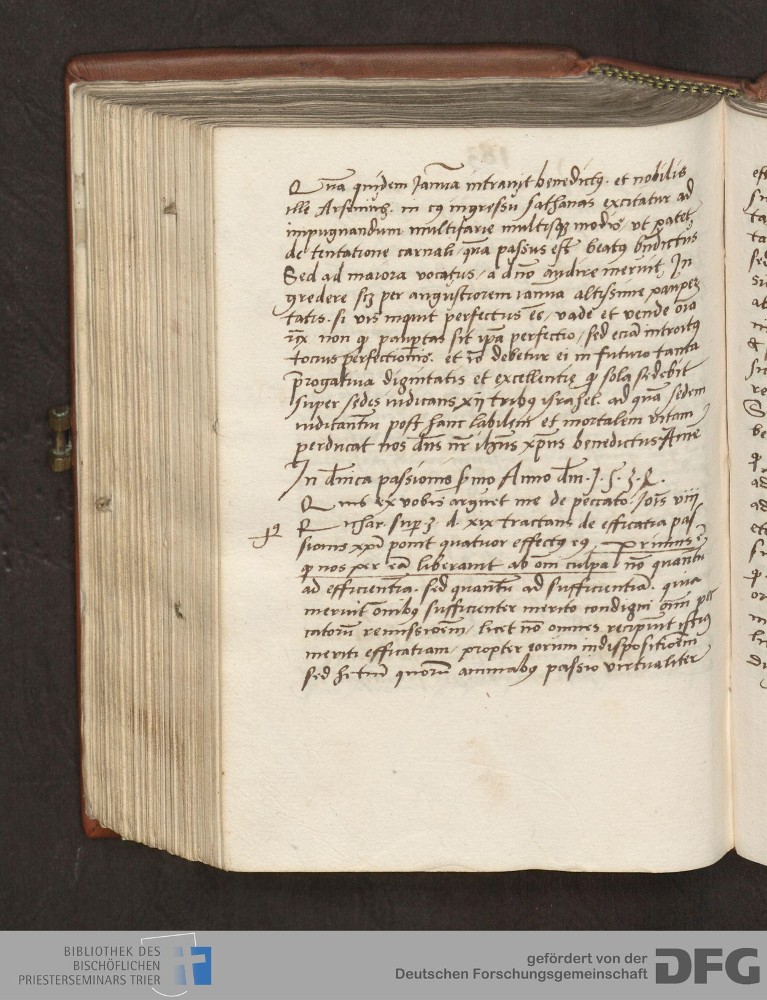 Qua quidem Ianua intrauit benedictus et nobilis
ille Arsenius. in cuius ingressu Sathanas excitatur ad
impugnandum multifarie multisque modis, ut patet
de tentatione carnali, qua passus est beatus bndictus
Sed ad maiora vocatus, a dno audire meruit, In
gredere scz per angustiorem ianua altissime pauper
tatis. si vis inquit perfectus es, vade et vende oia
non pauptas sit ipa perfectio, sed ecia introitus
totius perfectionis. et io debetur ei in futuro tanta
prerogatiua dignitatis et excellentie sola sedebit
super sedes iudicans xij tribus israhel. ad qua sedem
iudicantiu post hanc labilem et mortalem vitam
perducat nos dns nr ihsus xpus benedictus Ame
In dnica passionis smo Anno dm. 1. 5. 3. 2.
Quis ex vobis arguet me de peccato. Iois viij
Richar. sup 3 d. xix tractans de efficatia pas
sionis xpi ponit quatuor effectus eius, Primus e
nos per ea liberauit ab omi culpa no quantu
ad efficientia. sed quantu ad sufficientia. quia
meruit omibus sufficienter merito condigni omi pec
catoru remissioem, licet no omnes recipiunt istius
meriti efficatiam, propter eorum indispositioem
sed hi tm quoru animabus passio virtualiter
BIBLIOTHEK DES
BISCHÖFLICHEN
PRIESTERSEMINARS TRIER
gefördert von der
Deutschen Forschungsgemeinschaft
DFG